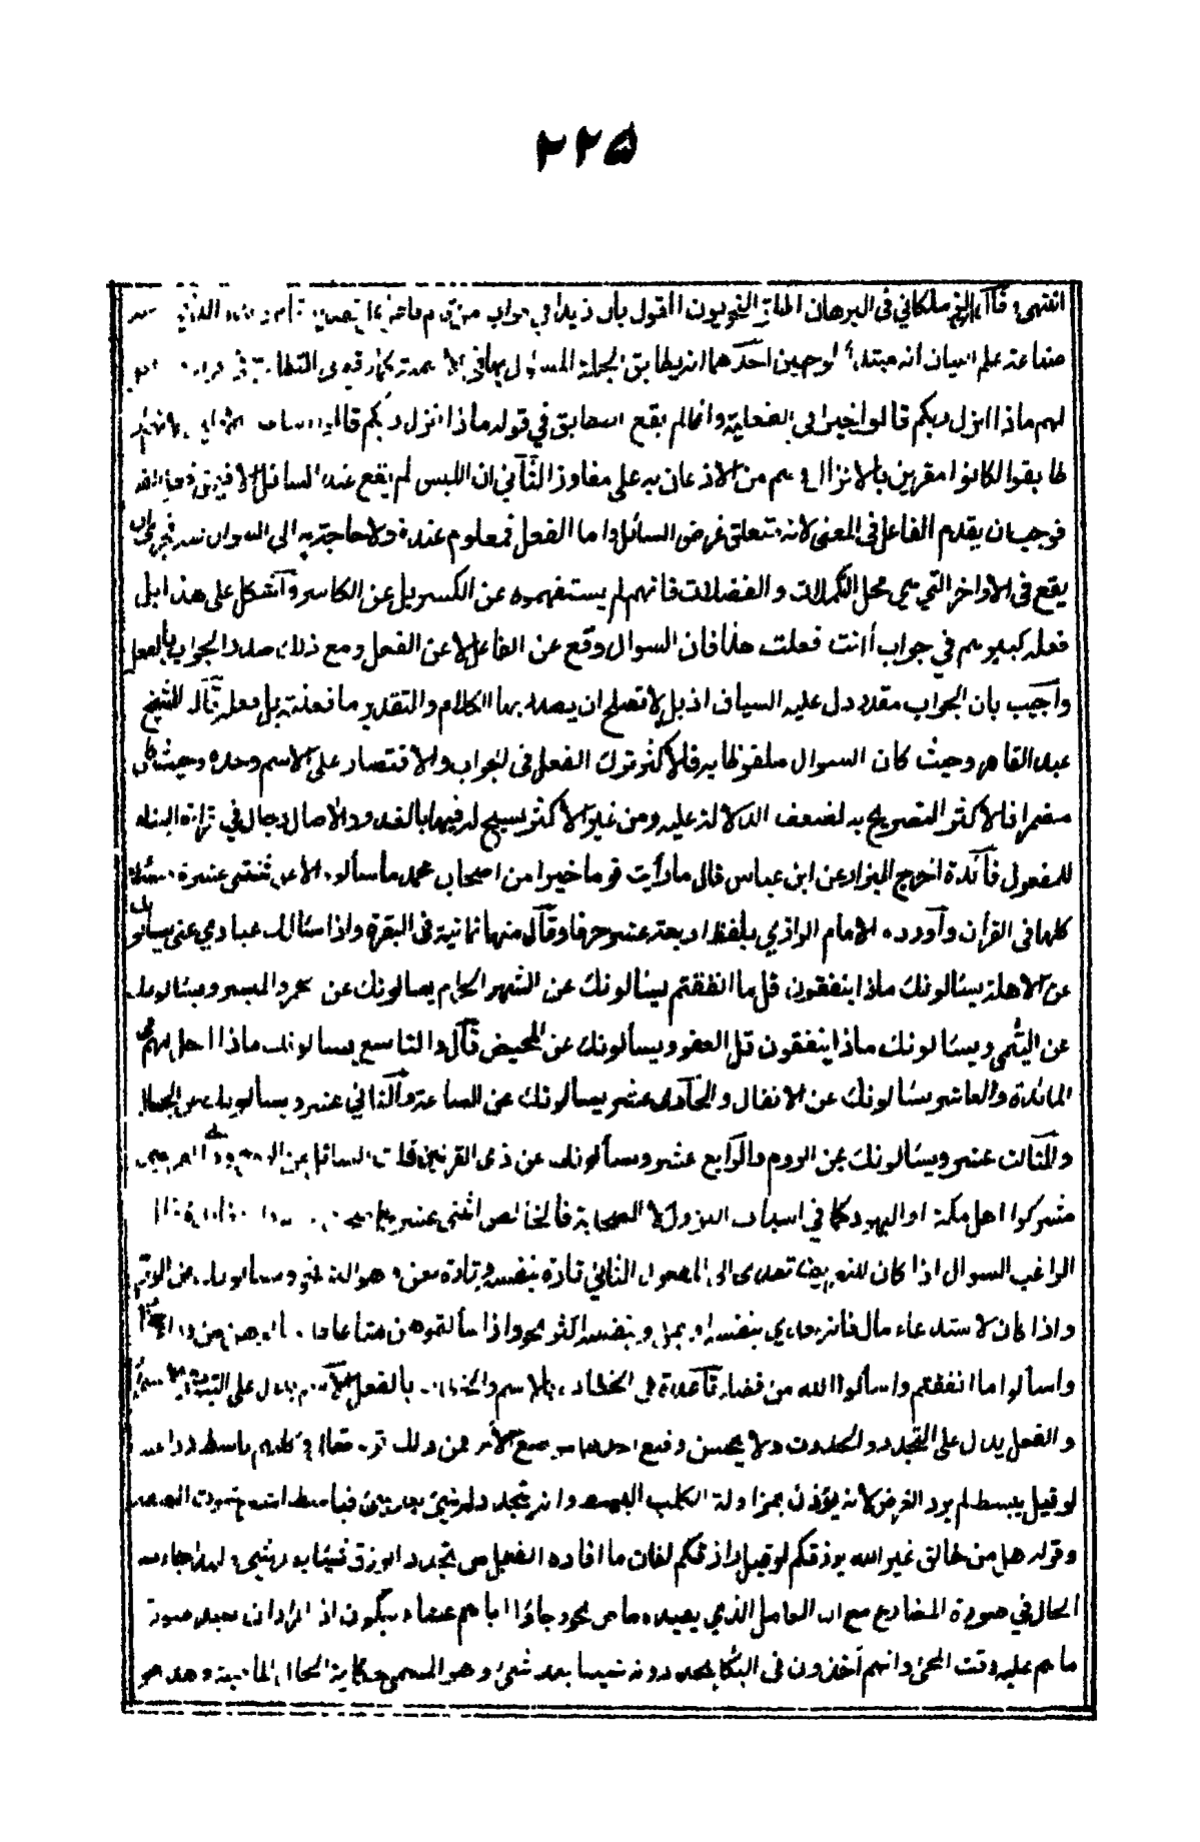 ٢٢٥
انتهى وقال ابن الزملكاني في البرهان اطلق النحويون القول بان زيدا في جواب من قام فاعل
صناعة علم البيان انه مبتدأ لوجهين احدهما انه يطابق الجملة المسؤل بها في
لهم ماذا انزل ربكم قالوا خيرا في الفعلية وانما لم يقع التطابق في قوله ماذا انزل ربكم قالوا
طابقوا لكانوا مقرين بالانزال وهم من الاذعان به على مفاوز الثاني ان اللبس لم يقع عند السائل الا فيمن
فوجب ان يقدم الفاعل في المعنى لانه متعلق غرض السائل واما الفعل فمعلوم عنده ولا حاجة به الى السوال عنه فحرى ان
يقع في الاواخر التي هي محل التكملات والفضلات فانهم لم يستفهموه عن الكسر بل عن الكاسر واشكل على هذا بل
فعله كبيرهم في جواب أانت فعلت هذا فان السوال وقع عن الفاعل لا عن الفعل ومع ذلك صدر الجواب بالفعل
واجيب بان الجواب مقدر دل عليه السياق اذ بل لا تصلح ان يصدر بها الكلام والتقدير ما فعلته بل فعله قال الشيخ
عبد القاهر وحيث كان السوال ملفوظا به فالاكثر ترك الفعل في الجواب والاقتصار على الاسم وحده وحيث كان
مضمرا فالاكثر التصريح به لضعف الدلالة عليه ومن غير الاكثر يسبح له فيها بالغدو والاصال رجال في قراءة البناء
للمفعول فائدة اخرج البزار عن ابن عباس قال ما رأيت قوما خيرا من اصحاب محمد ما سألوه الا عن ثنتي عشرة مسئلة
كلها في القرأن واورده الامام الرازي بلفظ اربعة عشر حرفا وقال منها ثمانية في البقرة واذا سئالك عبادي عني يسألونك
عن الاهلة يسئالونك ماذا ينفقون قل ما انفقتم يسئالونك عن الشهر الحرام يسالونك عن الخمر والميسر ويسئالونك
عن اليتمى ويسئالونك ماذا ينفقون قل العفو ويسألونك عن المحيض قال والتاسع يسالونك ماذا احل لهم في
المائدة والعاشر يسئالونك عن الانفال والحادى عشر يسألونك عن الساعة والثاني عشر ويسألونك عن الجبال
والثالث عشر ويسئالونك عن الروح والرابع عشر ويسألونك عن ذى القرنين قلت السائل عن الروح
مشركوا اهل مكة او اليهود كما في اسباب النزول لا الصحابة فالخالص اثنى عشر
الراغب السوال اذا كان للتعريف تعدى الى المفعول الثاني تارة بنفسه وتارة بعن وهو اكثر نحو ويسألونك عن الروح
واذا كان لاستدعاء مال فانه يعدي بنفسه او بمن وبنفسه اكثر نحو واذا سألتموهن متاعا
واسألوا ما انفقتم واسألوا الله من فضله قاعدة في الخطاب بالاسم والخطاب بالفعل الاسم يدل على الثبوت
والفعل يدل على التجدد والحدوث ولا يحسن وضع احدهما موضع الاخر فمن ذلك قوله تعالى وكلبهم باسط ذراعيه
لو قيل يبسط لم يود الغرض لانه يؤذن بمزاولة الكلب البسط وانه يتجدد له شيئ بعد شيئ فباسط اشعر بثبوت الصفة
وقوله هل من خالق غير الله يرزقكم لو قيل رازقكم لفات ما افاده الفعل من تجدد الرزق شيئا بعد شيئ ولهذا جاءت
الحال في صورة المضارع مع ان العامل الذي يفيده ماض نحو وجاؤا اباهم عشاء يبكون اذ المراد ان يفيد صورة
ما هم عليه وقت المجئ وانهم آخذون في البكاء يجددونه شيئا بعد شيئ وهو المسمى حكاية الحال الماضية وهذا هو